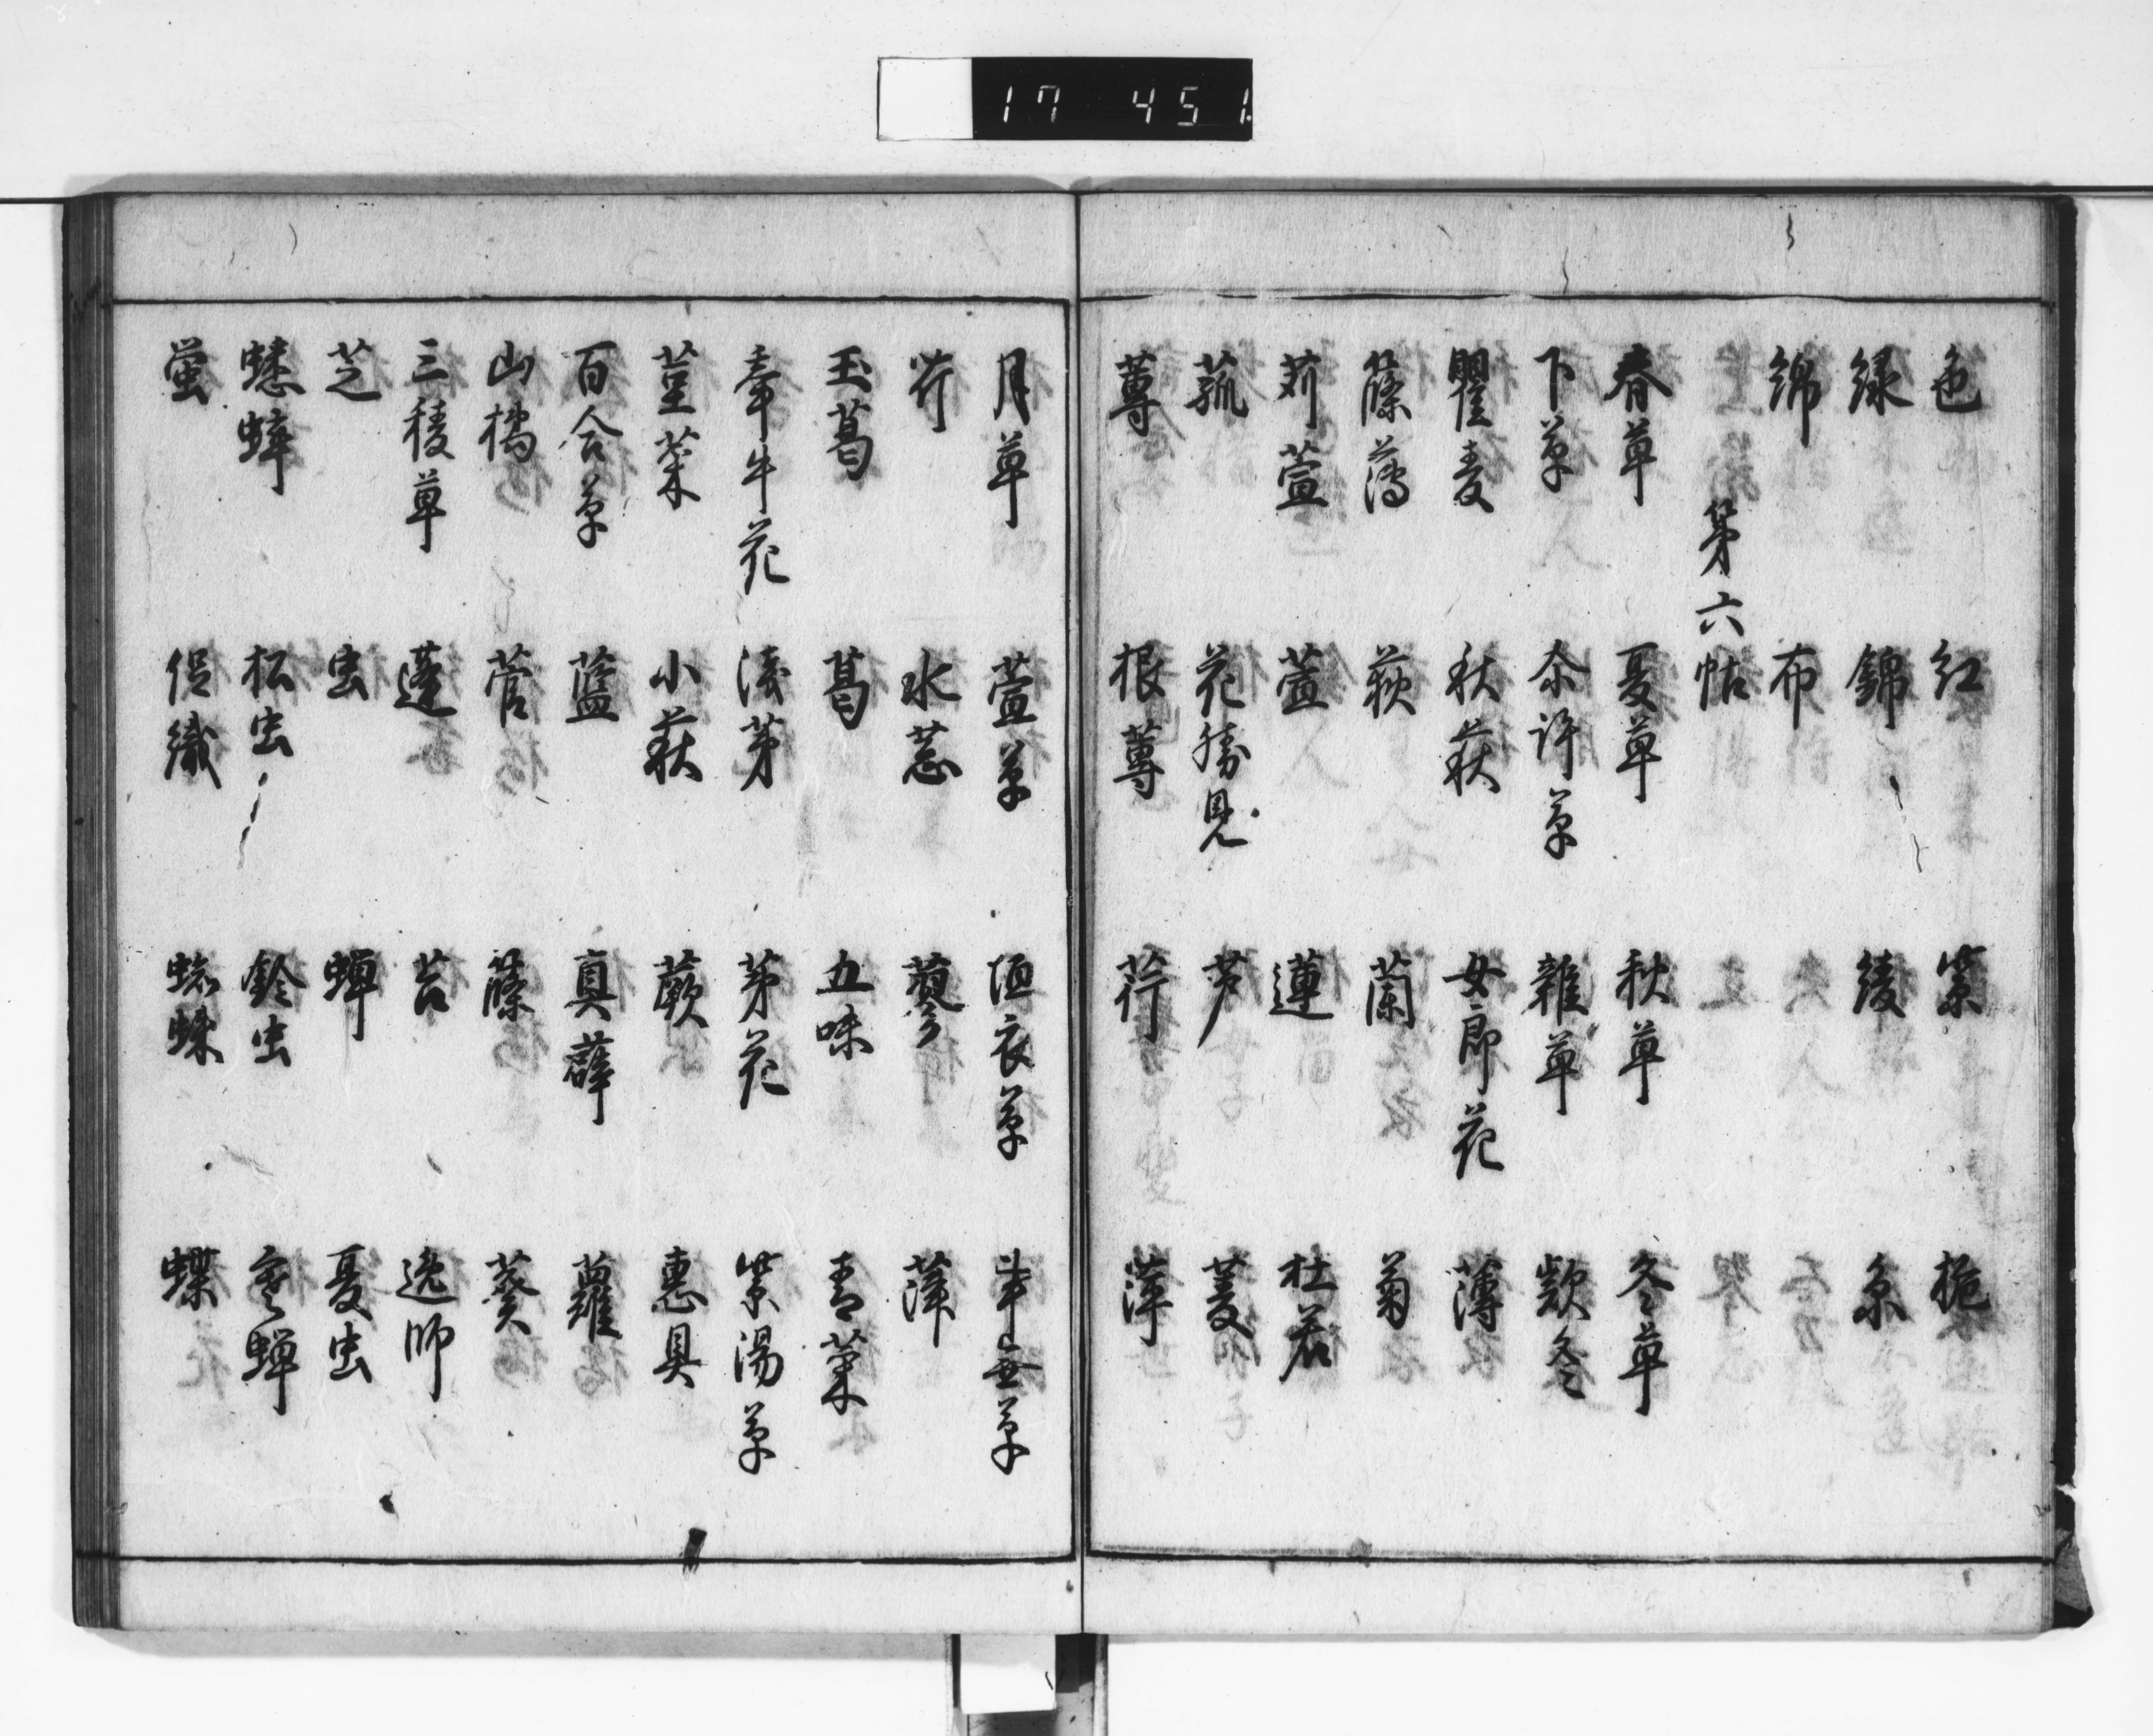 17 451
色 紅 紫 梔
緑 錦 綾 糸
綿 布
第六帖
春草 夏草 秋草 冬草
下草 尒許草 雑草 欵冬
瞿麦 秋萩 女郎花 薄
篠薄 荻 蘭 菊
苅萱 萱 蓮 杜若
菰 花勝見 芦 菱
蓴 根蓴 荇 萍
月草 萱草 垣衣草 芋
芹 水葱 蓼 萍
玉葛 葛 五味 青菜
牽牛花 浅茅 茅花 紫湯草
菫菜 小萩 蕨 惠具
百合草 藍 真薜 蘿
山橘 菅 藤 葵
三稜草 蓬 苔 逸師
芝 虫 蝉 夏虫
蟋蟀 松虫 鈴虫 寒蝉
蛍 促織 蜘蛛 蝶